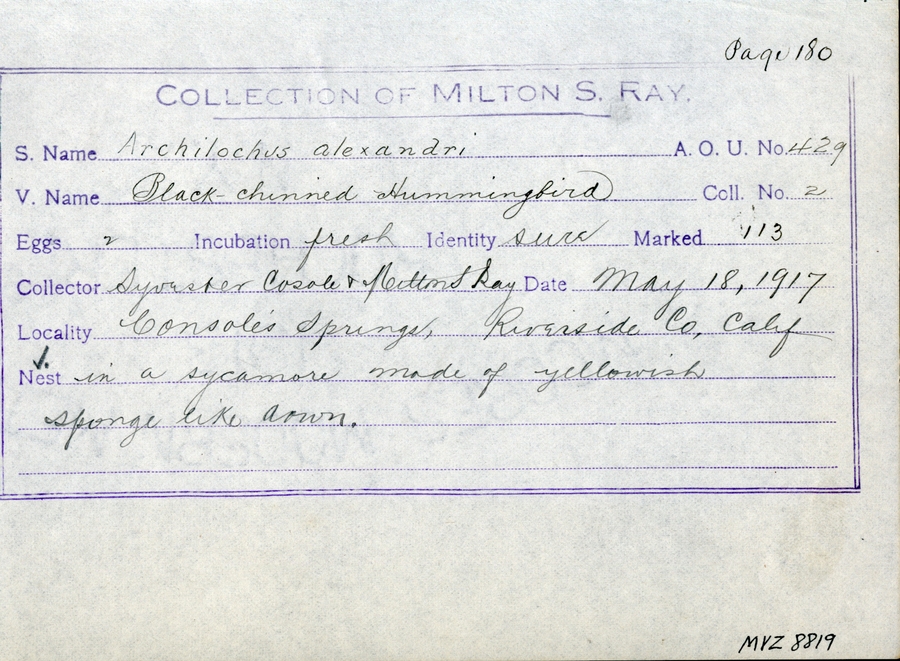 Page 180
COLLECTION OF MILTON S. RAY.
S. Name Archilochus alexandri A. O. U. No. 429
V. Name Black-chinned Hummingbird Coll. No. 2
Eggs 2 Incubation fresh Identity sure Marked 113
Collector Sylvester Cosole & Milton S Ray Date May 18, 1917
Locality Console's Springs, Riverside Co, Calif
Nest in a sycamore made of yellowish
sponge like down.
MVZ 8819